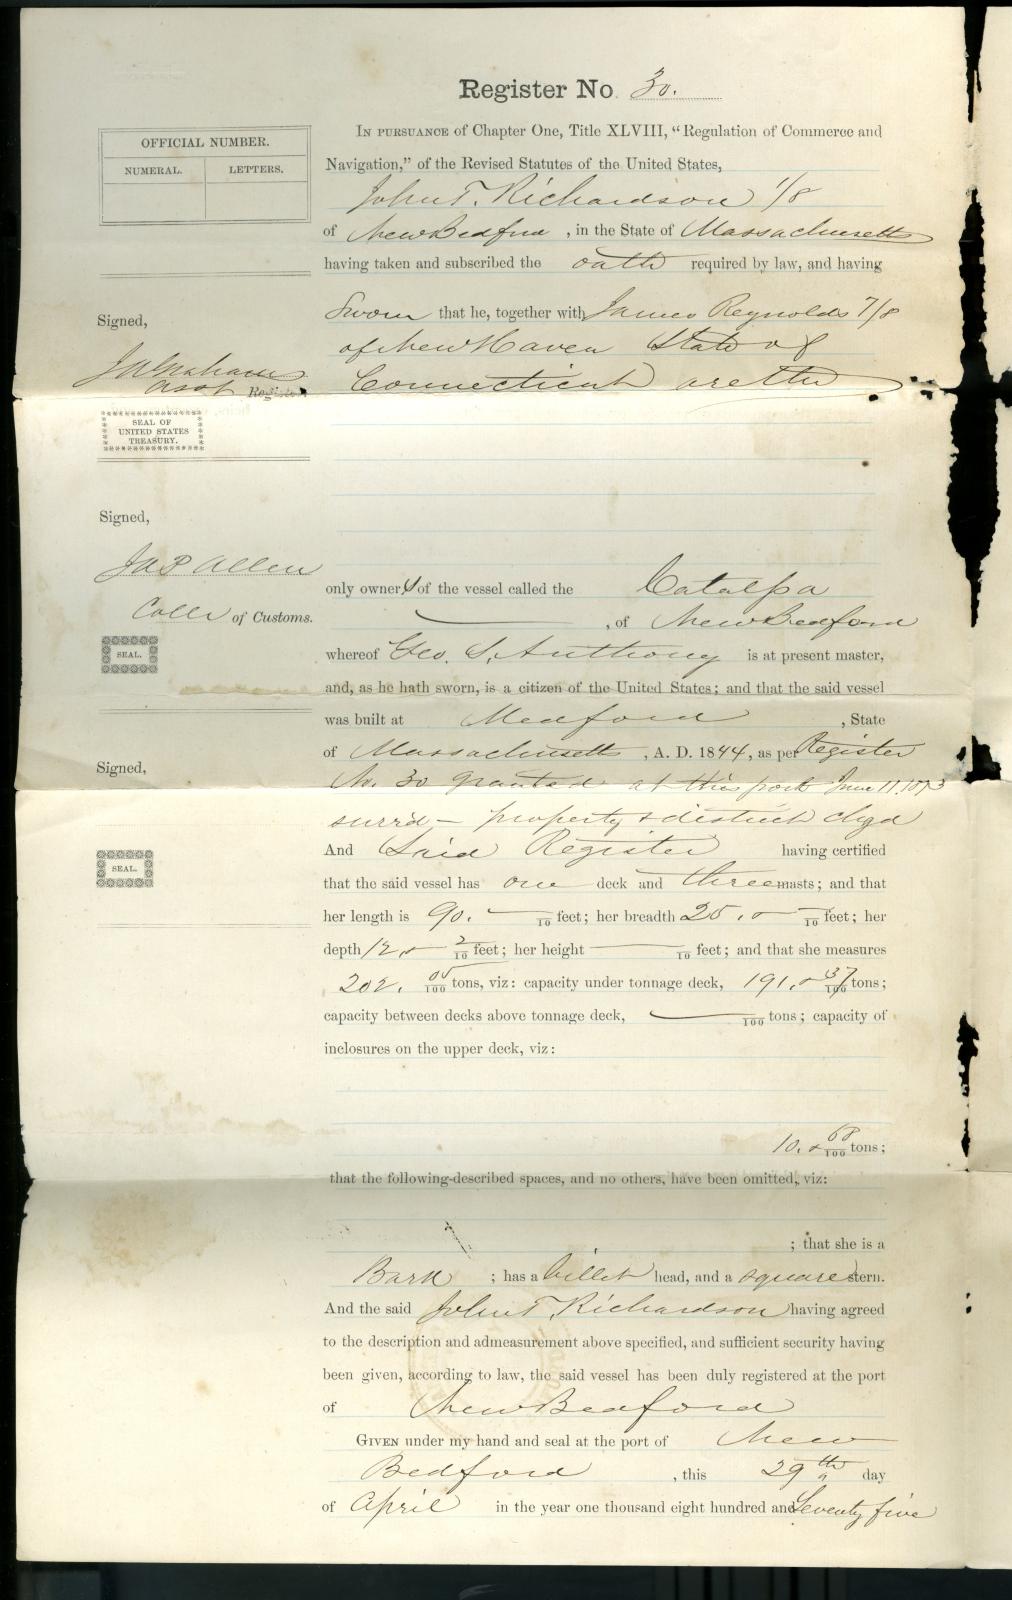 Register No 30.
OFFICIAL NUMBER.
NUMERAL. LETTERS.
IN PURSUANCE of Chapter One, Title XLVIII, "Regulation of Commerce and
Navigation," of the Revised Statutes of the United States,
John T. Richardson 1/8
of New Bedford, in the State of Massachusetts
having taken and subscribed the oath required by law, and having
Sworn that he, together with James Reynolds 7/8
of New Haven State of
Connecticut are the
Signed,
Asst Register
SEAL OF
UNITED STATES
TREASURY.
Signed,
Jno P Allen
Collr of Customs.
SEAL.
Signed,
SEAL.
only owners of the vessel called the Catalpa
, of New Bedford
whereof Geo. S. Anthony is at present master,
and, as he hath sworn, is a citizen of the United States; and that the said vessel
was built at Medford, State
of Massachusetts, A. D. 1844, as per Register
No. 30 granted at this port June 11. 1873
surr'd - property & district chgd
And Said Register having certified
that the said vessel has one deck and three masts; and that
her length is 90. — /10 feet; her breadth 25. — /10 feet; her
depth 12. 2/10 feet; her height — /10 feet; and that she measures
202. 05/100 tons, viz: capacity under tonnage deck, 191. 37/100 tons;
capacity between decks above tonnage deck, — /100 tons; capacity of
inclosures on the upper deck, viz:
10. 68/100 tons;
that the following-described spaces, and no others, have been omitted, viz:
; that she is a
Bark; has a billet head, and a square stern.
And the said John T. Richardson having agreed
to the description and admeasurement above specified, and sufficient security having
been given, according to law, the said vessel has been duly registered at the port
of New Bedford
GIVEN under my hand and seal at the port of New
Bedford, this 29th day
of April in the year one thousand eight hundred and Seventy five